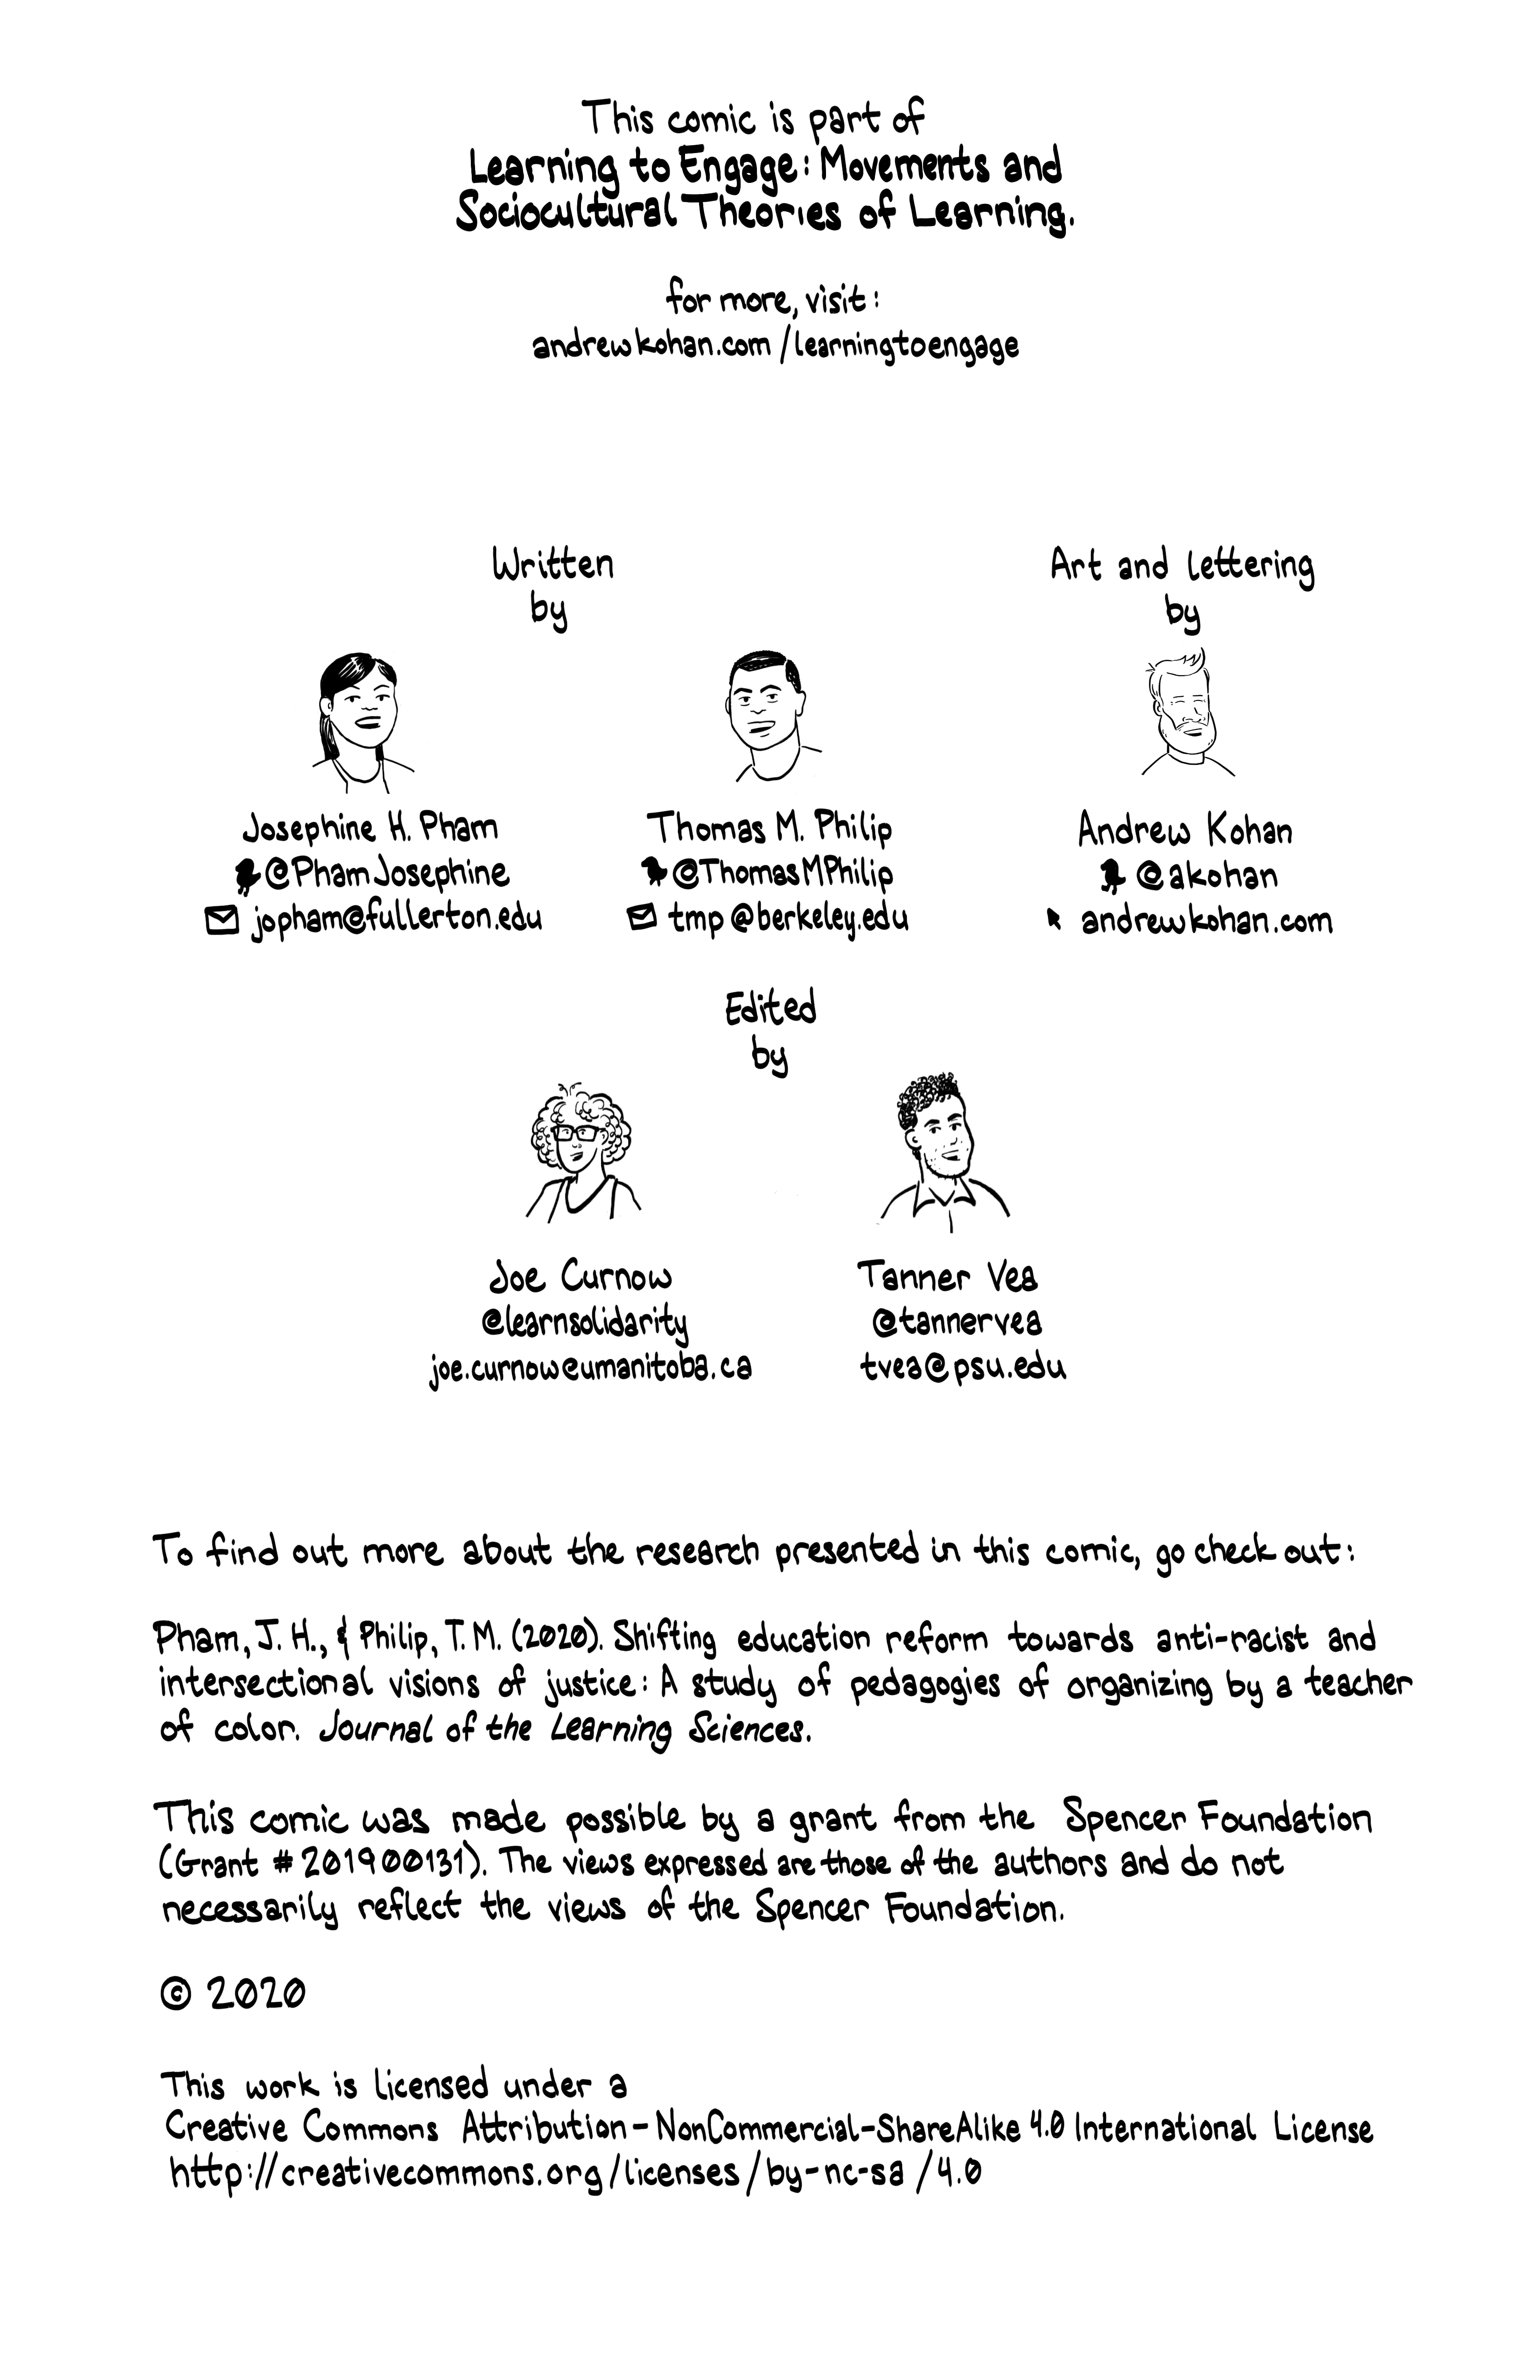 This comic is part of
Learning to Engage: Movements and
Sociocultural Theories of Learning.
for more, visit:
andrewkohan.com/learningtoengage
Written
by
Art and lettering
by
Josephine H. Pham
@PhamJosephine
jopham@fullerton.edu
Thomas M. Philip
@ThomasMPhilip
tmp@berkeley.edu
Andrew Kohan
@akohan
andrewkohan.com
Edited
by
Joe Curnow
@learnsolidarity
joe.curnow@umanitoba.ca
Tanner Vea
@tannervea
tvea@psu.edu
To find out more about the research presented in this comic, go check out:
Pham, J. H., & Philip, T. M. (2020). Shifting education reform towards anti-racist and
intersectional visions of justice: A study of pedagogies of organizing by a teacher
of color. Journal of the Learning Sciences.
This comic was made possible by a grant from the Spencer Foundation
(Grant # 201900131). The views expressed are those of the authors and do not
necessarily reflect the views of the Spencer Foundation.
© 2020
This work is licensed under a
Creative Commons Attribution-NonCommercial-ShareAlike 4.0 International License
http://creativecommons.org/licenses/by-nc-sa/4.0